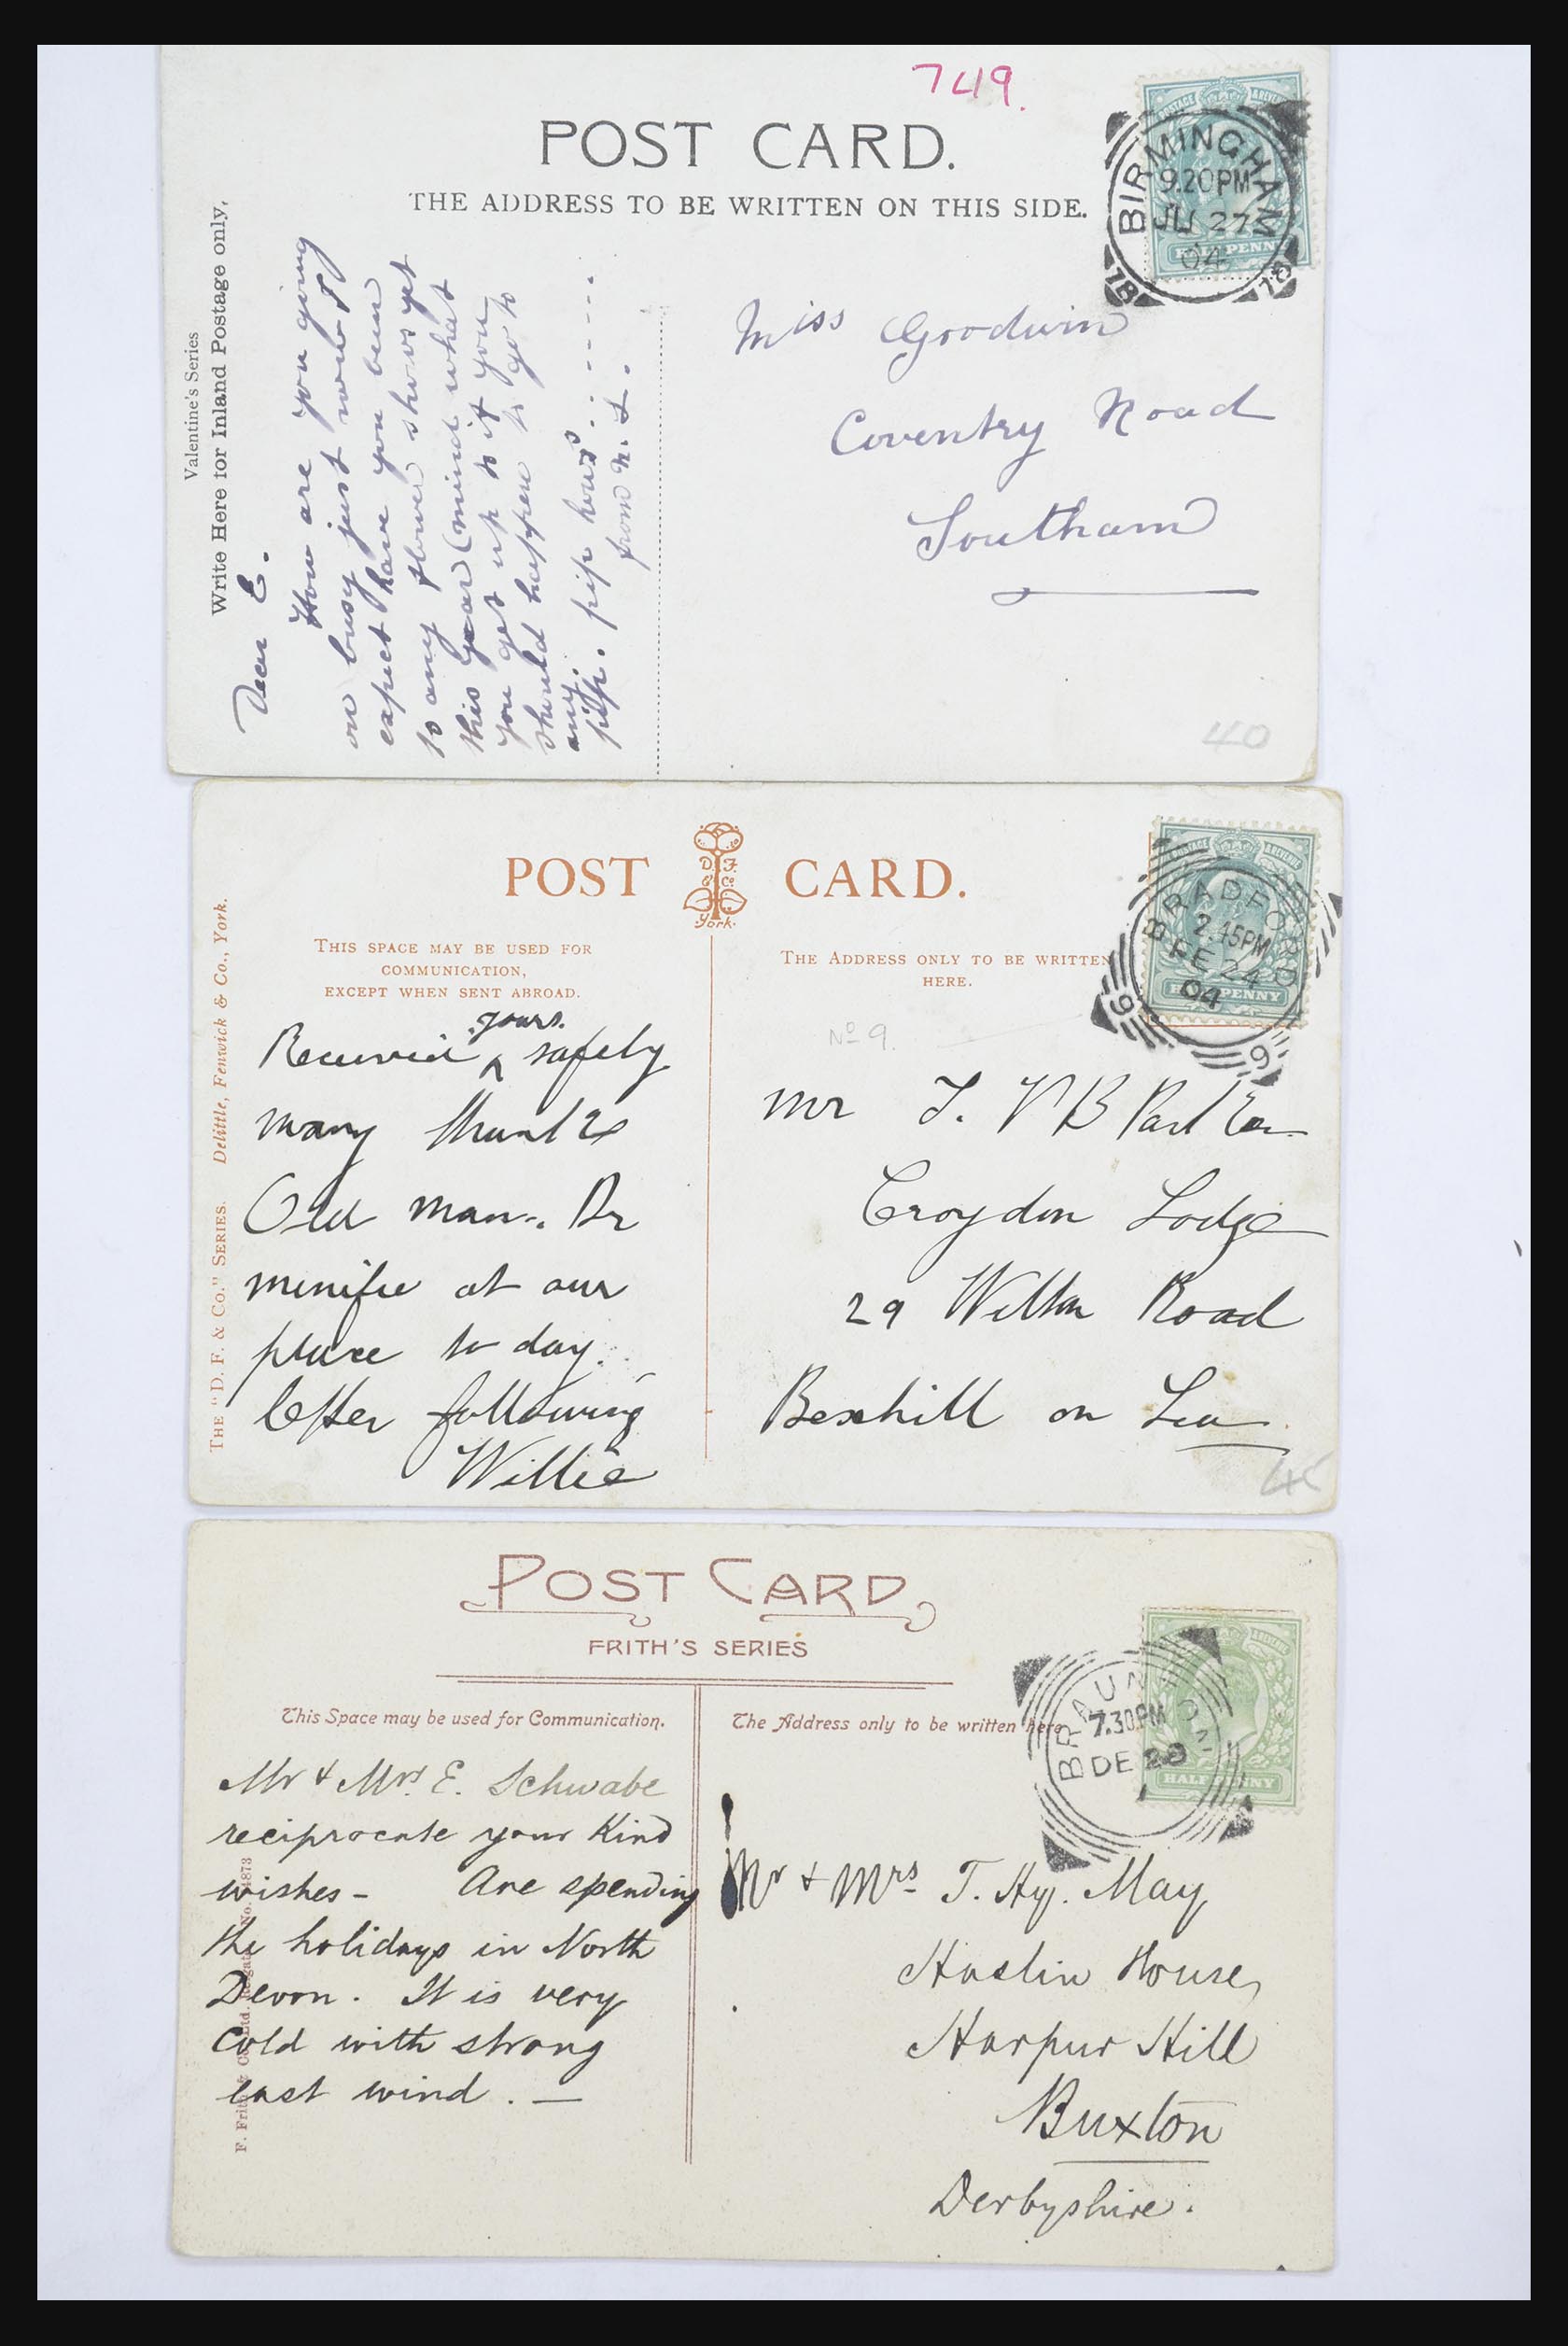 749.
POST CARD.
THE ADDRESS TO BE WRITTEN ON THIS SIDE.
BIRMINGHAM
9.20PM
JU 27
04
18 18
HALFPENNY
POSTAGE & REVENUE
Valentine's Series
Write Here for Inland Postage only.
Dear E.
How are you going
on busy just now I
expect have you been
to any flower shows yet
this year (mind what
you get up to if you
should happen to go to
any.
pip. pip
from
Miss Goodwin
Coventry Road
Southam
40
POST CARD.
D. F. & Co. York.
THIS SPACE MAY BE USED FOR
COMMUNICATION,
EXCEPT WHEN SENT ABROAD.
THE ADDRESS ONLY TO BE WRITTEN
HERE.
POSTAGE & REVENUE
HALFPENNY
BRADFORD
2.45PM
FE 24
04
9 9
THE "D. F. & CO." SERIES. Delittle, Fenwick & Co., York.
No 9.
yours.
Received ^ safely
many thanks
Old man. Dr
menifie at our
place to day.
letter following
Willie
Mr T. V B
Croydon Lodge
29 Wilton Road
Bexhill on Sea
45
POST CARD
FRITH'S SERIES
This Space may be used for Communication.
The Address only to be written here
BRAUNTON
7.30PM
DE 28
HALFPENNY
Mr & Mrs. E. Schwabe
reciprocate your kind
wishes - Are spending
the holidays in North
Devon. It is very
cold with strong
east wind. —
F. Frith & Co. Ltd. Reigate No. 4873
Mr & Mrs T. Hy. May
Haslin House,
Harpur Hill
Buxton
Derbyshire.